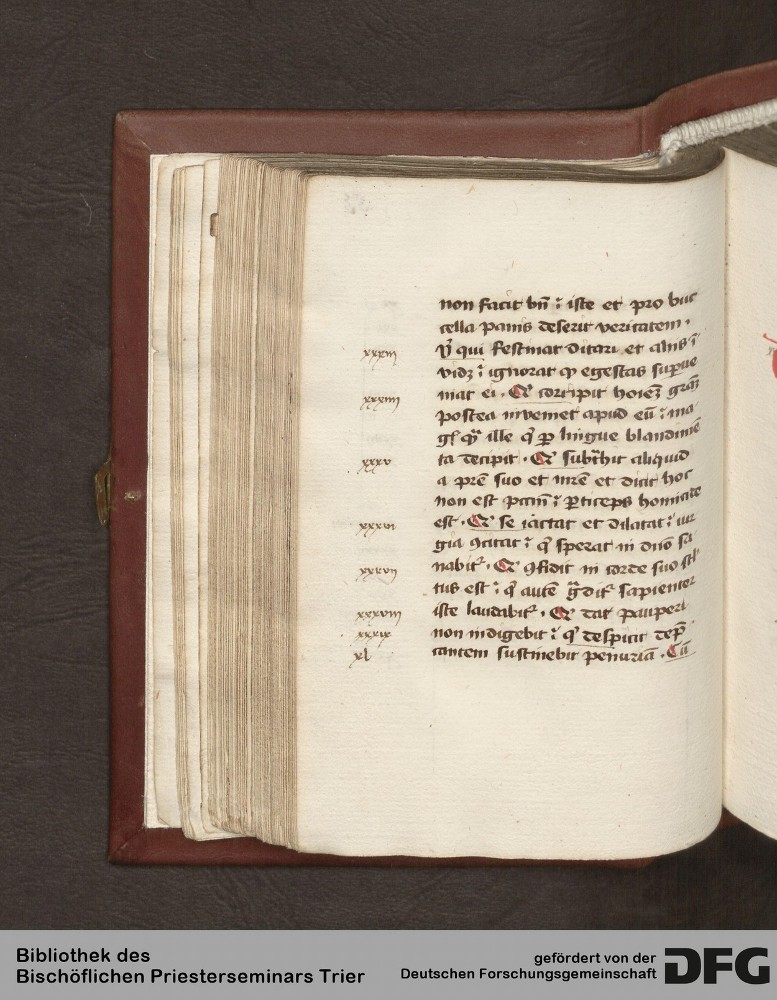 non facit bn̄ : iste et pro buc
cella panis deserit veritatem .
Vͥ qui festinat ditari et aliis ī
vidꝫ : ignorat ꝙ egestas supͥue
xxxiii
niat ei . Qͥ corripit hoīeꝫ graꝫ
xxxiiii
postea inveniet apud eū : ma
gͥ qͣꝫ ille qͥ ꝑ lingue blandimē
ta decipit . Qͥ subtͣhit aliquid
xxxv
a prē suo et mrē et dicit hoc
non est pctm̄ : ꝑticeps homicide
est . Qͥ se iactat et dilatat : iur
xxxvi
gia ꝯcitat : qͥ sperat in dn̄o sa
nabitͬ . Qͥ ꝯfidit in corde suo stl
xxxvii
tus est : qͥ autē gͣditͬ sapienter
iste laudabitͬ . Qͥ dat pauperi
xxxviii
non indigebit : qͥ despicit dep̄
xxxix
cantem sustinebit penuriā . Cū
xl
Bibliothek des
Bischöflichen Priesterseminars Trier
gefördert von der
Deutschen Forschungsgemeinschaft
DFG